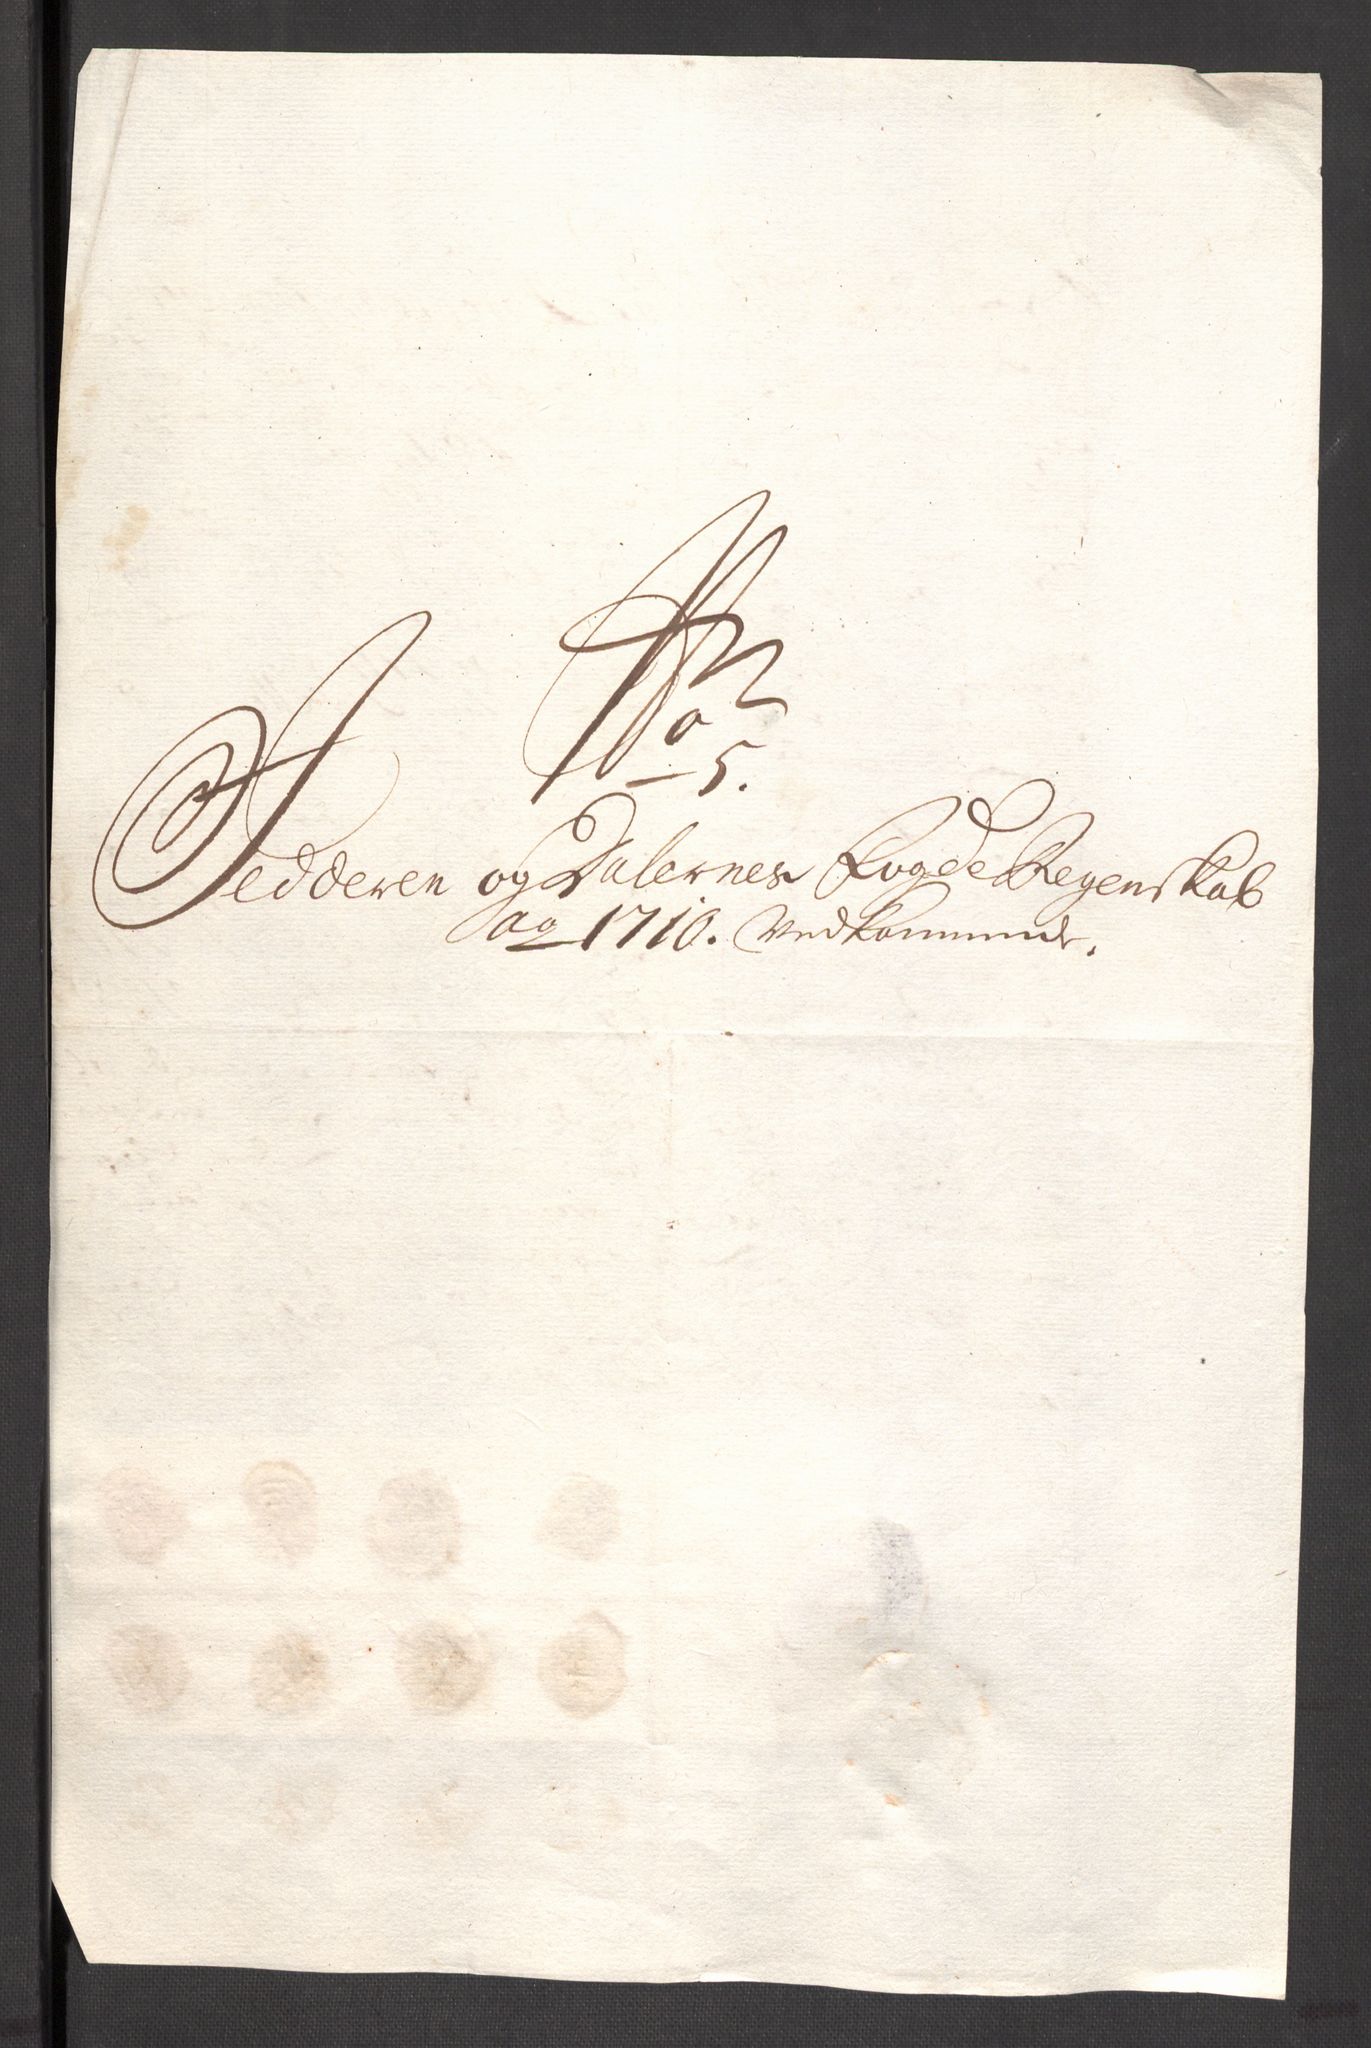 No
5.
Jedderen og Dalernes Fogde Regenskab
pag 1710. Vedkommende.